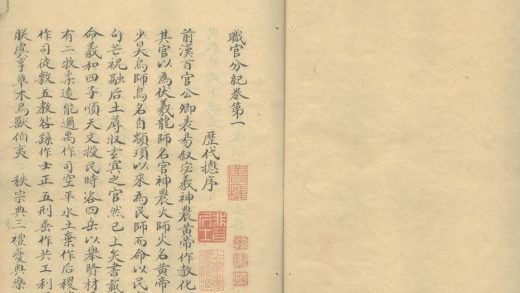 職官分紀卷第一
歷代揔序
前漢百官公卿表易叙宓羲神農黃帝作敎化
其官以為伏羲龍師名官神農火師火名黃帝
少昊鳥師鳥名自顓頊以來為民師而命以民
句芒祝融后土蓐收玄冥之官然已上矣書載
命羲和四子順天文授民時咨四岳以舉賢材
有二牧柔遠能邇禹作司空平水土棄作后稷
作司徒敷五敎咎繇作士正五刑垂作共工利
朕虞育草木鳥獸伯夷 秩宗典三禮夔典樂